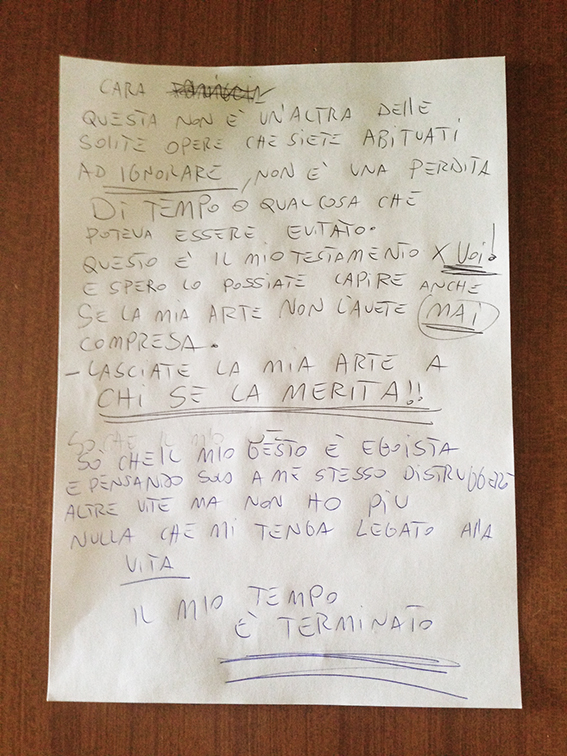 CARA
QUESTA NON È UN'ALTRA DELLE
SOLITE OPERE CHE SIETE ABITUATI
AD IGNORARE, NON È UNA PERDITA
DI TEMPO O QUALCOSA CHE
POTEVA ESSERE EVITATO.
QUESTO È IL MIO TESTAMENTO X VOI!
E SPERO LO POSSIATE CAPIRE ANCHE
SE LA MIA ARTE NON L'AVETE MAI
COMPRESA.
- LASCIATE LA MIA ARTE A
CHI SE LA MERITA!!
SO CHE IL MIO
SO CHE IL MIO GESTO È EGOISTA
E PENSANDO SOLO A ME STESSO DISTRUGGERÒ
ALTRE VITE MA NON HO PIU
NULLA CHE MI TENGA LEGATO ALLA
VITA
IL MIO TEMPO
È TERMINATO